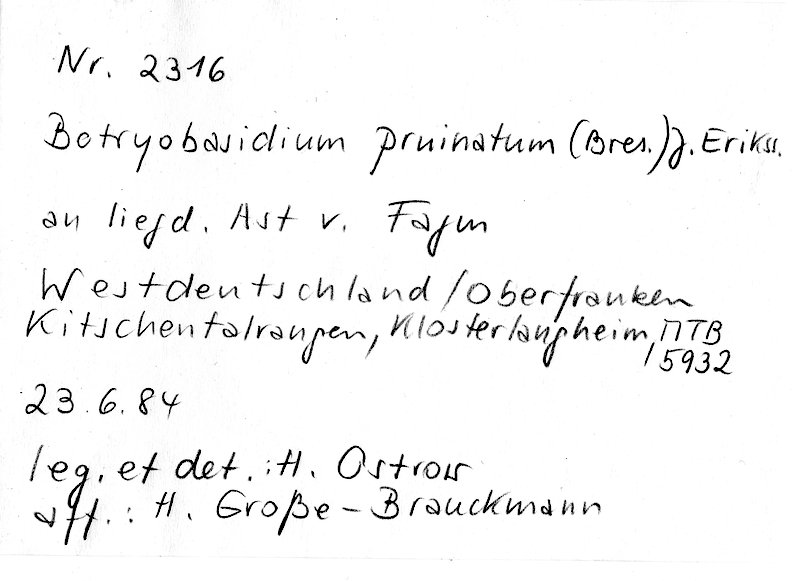 Nr. 2316
Botryobasidium pruinatum (Bres.) J. Erikss.
an liegd. Ast v. Fagus
Westdeutschland / Oberfranken
Kitschentalrangen, Klosterlangheim, MTB
/ 5932
23.6.84
leg. et det.: H. Ostrow
aff.: H. Große-Brauckmann